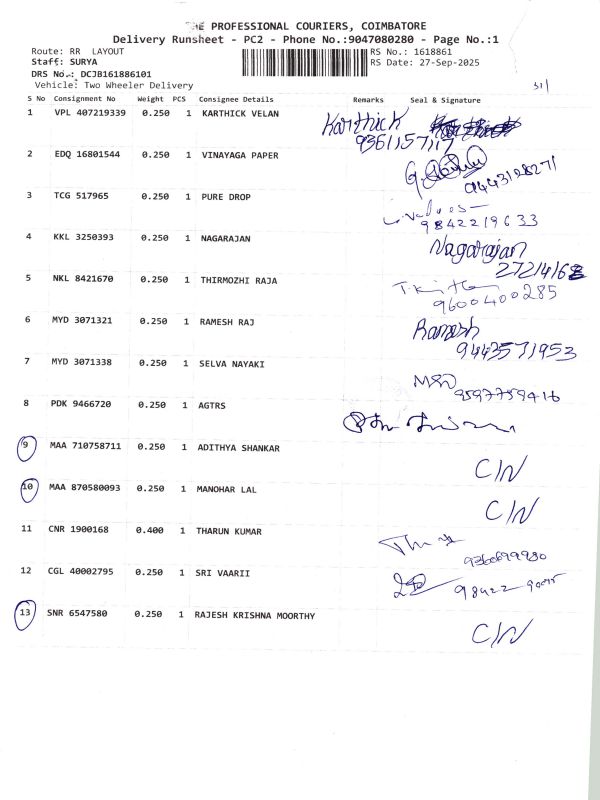 THE PROFESSIONAL COURIERS, COIMBATORE
Delivery Runsheet - PC2 - Phone No.:9047080280 - Page No.:1
Route: RR LAYOUT RS No.: 1618861
Staff: SURYA RS Date: 27-Sep-2025
DRS No.: DCJB161886101
Vehicle: Two Wheeler Delivery
S No Consignment No Weight PCS Consignee Details Remarks Seal & Signature
1 VPL 407219339 0.250 1 KARTHICK VELAN Karthick
9361157117
2 EDQ 16801544 0.250 1 VINAYAGA PAPER
3 TCG 517965 0.250 1 PURE DROP
9842219633
4 KKL 3250393 0.250 1 NAGARAJAN Nagarajan
5 NKL 8421670 0.250 1 THIRMOZHI RAJA
9600400285
6 MYD 3071321 0.250 1 RAMESH RAJ Ramesh
9443571953
7 MYD 3071338 0.250 1 SELVA NAYAKI
9597759416
8 PDK 9466720 0.250 1 AGTRS
9 MAA 710758711 0.250 1 ADITHYA SHANKAR C/N
10 MAA 870580093 0.250 1 MANOHAR LAL C/N
11 CNR 1900168 0.400 1 THARUN KUMAR
12 CGL 40002795 0.250 1 SRI VAARII
13 SNR 6547580 0.250 1 RAJESH KRISHNA MOORTHY C/N